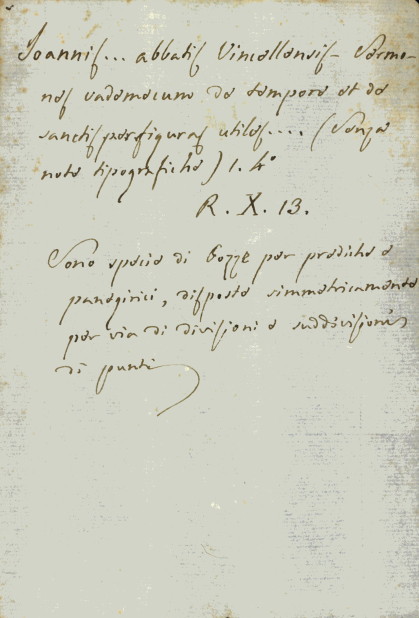 Joannis... abbatis Vincellensis Sermo-
nes vademecum de tempore et de
sanctis per figuras utiles.... (Senza
note tipografiche) 1. 4°
R. X. 13.
Sono specie di bozze per prediche e
panegirici, disposte simmetricamente
per via di divisioni e suddivisioni
di punti